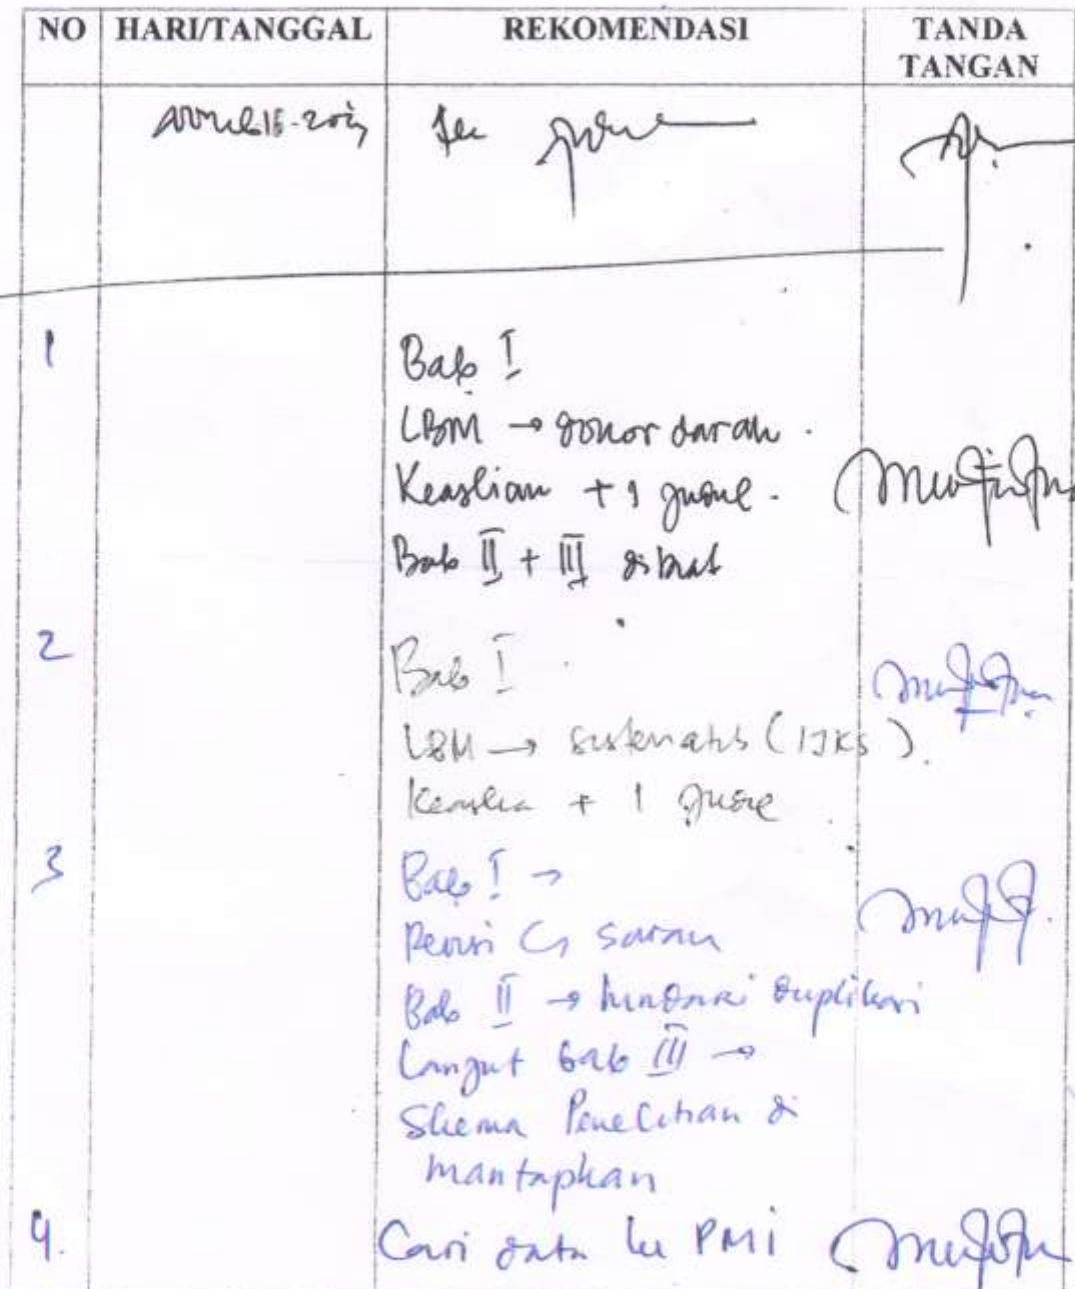 NO HARI/TANGGAL REKOMENDASI TANDA TANGAN
Acc
1
Bab I
LBM → donor darah.
Keaslian + 1 jurnal.
Bab II + III dibuat
2
Bab I
LBM → sistematis (IJKS)
Keaslian + 1 jurnal
3
Bab I →
Revisi saran
Bab II → hindari duplikasi
Lanjut bab III →
Skema Penelitian di
mantapkan
4.
Cari data ke PMI